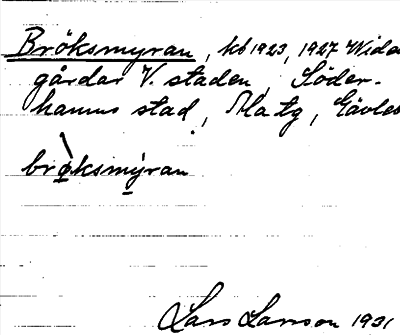 Bröksmyran, kb 1923, 1927 Wida
gårdar V. staden, Söder-
hamns stad, Ala tg, Gävleb
brøksmyran
Lars Larsson 1931